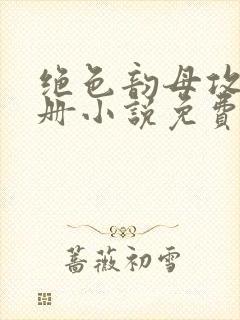 绝色韵母攻
册小说免費
蔷薇初雪